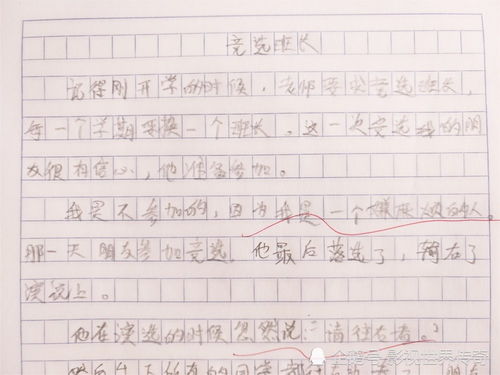 竞选班长
记得刚开学的时候，老师要求竞选班长，
每一个学期要换一个班长。这一次竞选我的朋
友很有信心，他准备参加。
我是不参加的，因为我是一个
那一天朋友参加竞选，他最后落选了，输在了
演说上。
他在演选的时候忽然说：“请往右看。”
然后
企鹅号 影视世界传奇